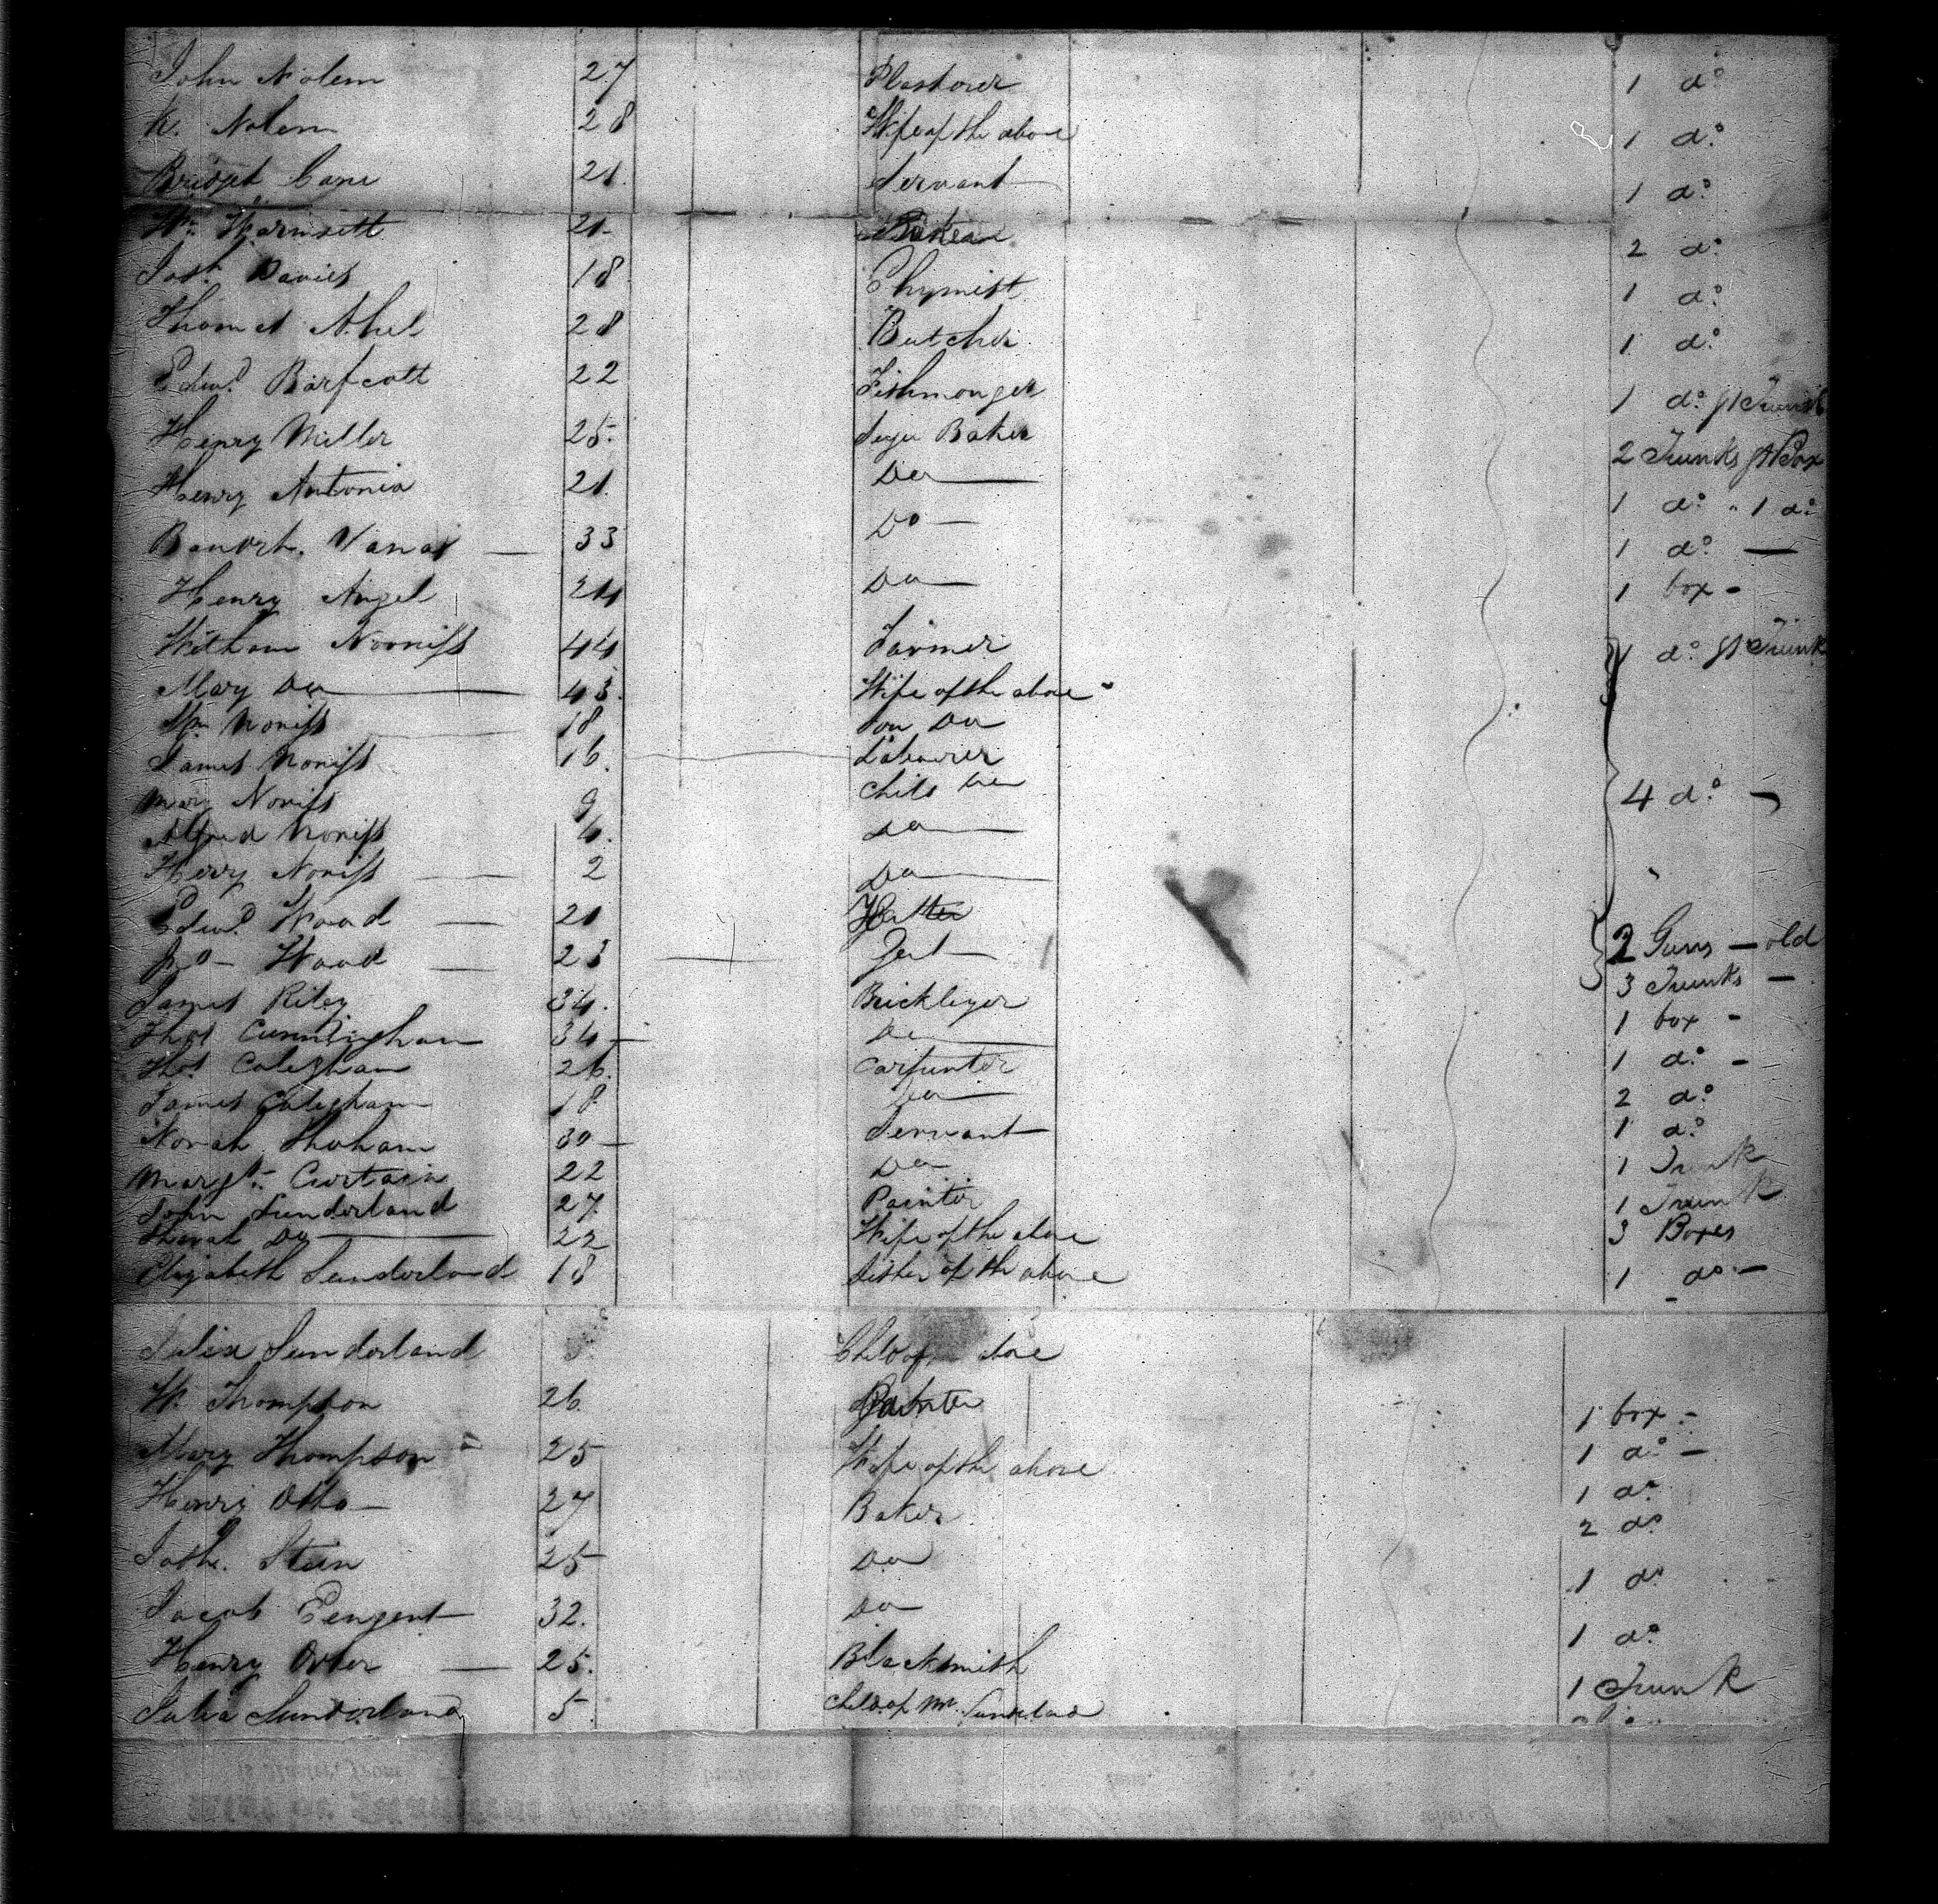 John Nolem 27 Plasterer 1 do
K. Nolem 28 Wife of the above 1 do
Bridget Cane 21 Servant 1 do
Wm 21 2 do
Josh. Davies 18 Chymist 1 do
Thomas Abel 28 Butcher 1 do
Edwd Barfcott 22 Fishmonger 1 do & 1 Trunk
Henry Miller 25 Suger Baker 2 Trunks & 1 Box
Henry Antonia 21 Do 1 do 1 do
33 Do 1 do
Henry Angel 24 Do 1 box
Norriss 44 Farmer 1 do & 1 Trunk
Mary Do 43 Wife of the above
Wm Noriss 18 Son Do
James Noriss 16 Labourer
Mary Noriss 9 Child Do 4 do
Alfred Noriss 6 Do
Henry Noriss 2 Do
Edwd Wood 21 Hatter
Jno Wood 23 Gent 2 Guns old
3 Trunks
James Riley 34 Bricklyer 1 box
Thos Cunningham 34 Do 1 do
Thos Calegham 26 Carpunter 2 do
James Calegham 18 Do 1 do
Norah 30 Servant 1 Trunk
Margt. Curtain 22 Do 1 Trunk
John Sunderland 27 Painter 3 Boxes
Do 22 Wife of the above
Elizabeth Sunderland 18 Sister of the above 1 do
Julia Sunderland 5 Child of above
W. Thompson 26 Painter 1 box
Mary Thompson 25 Wife of the above 1 do
Henry Otto 27 Baker 1 do
2 do
Stein 25 Do 1 do
Jacob 32 Do 1 do
Henry 25 Blacksmith 1 Trunk
Julia Sunderland 5 Child of Mr